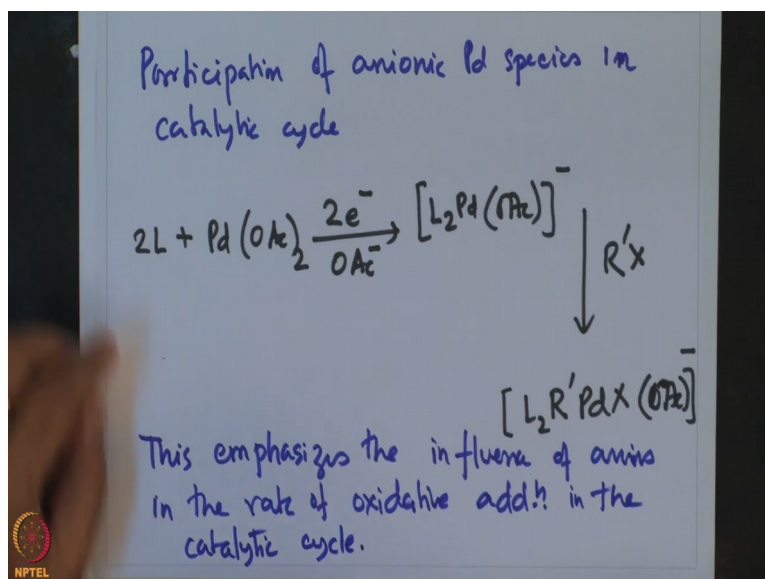 Participation of anionic Pd species in
catalytic cycle
2L + Pd(OAc)2 2e⁻ [L2Pd(OAc)]⁻
OAc⁻
R'X
[L2R'PdX(OAc)]⁻
This emphasizes the influence of anions
in the rate of oxidative addn in the
catalytic cycle.
NPTEL